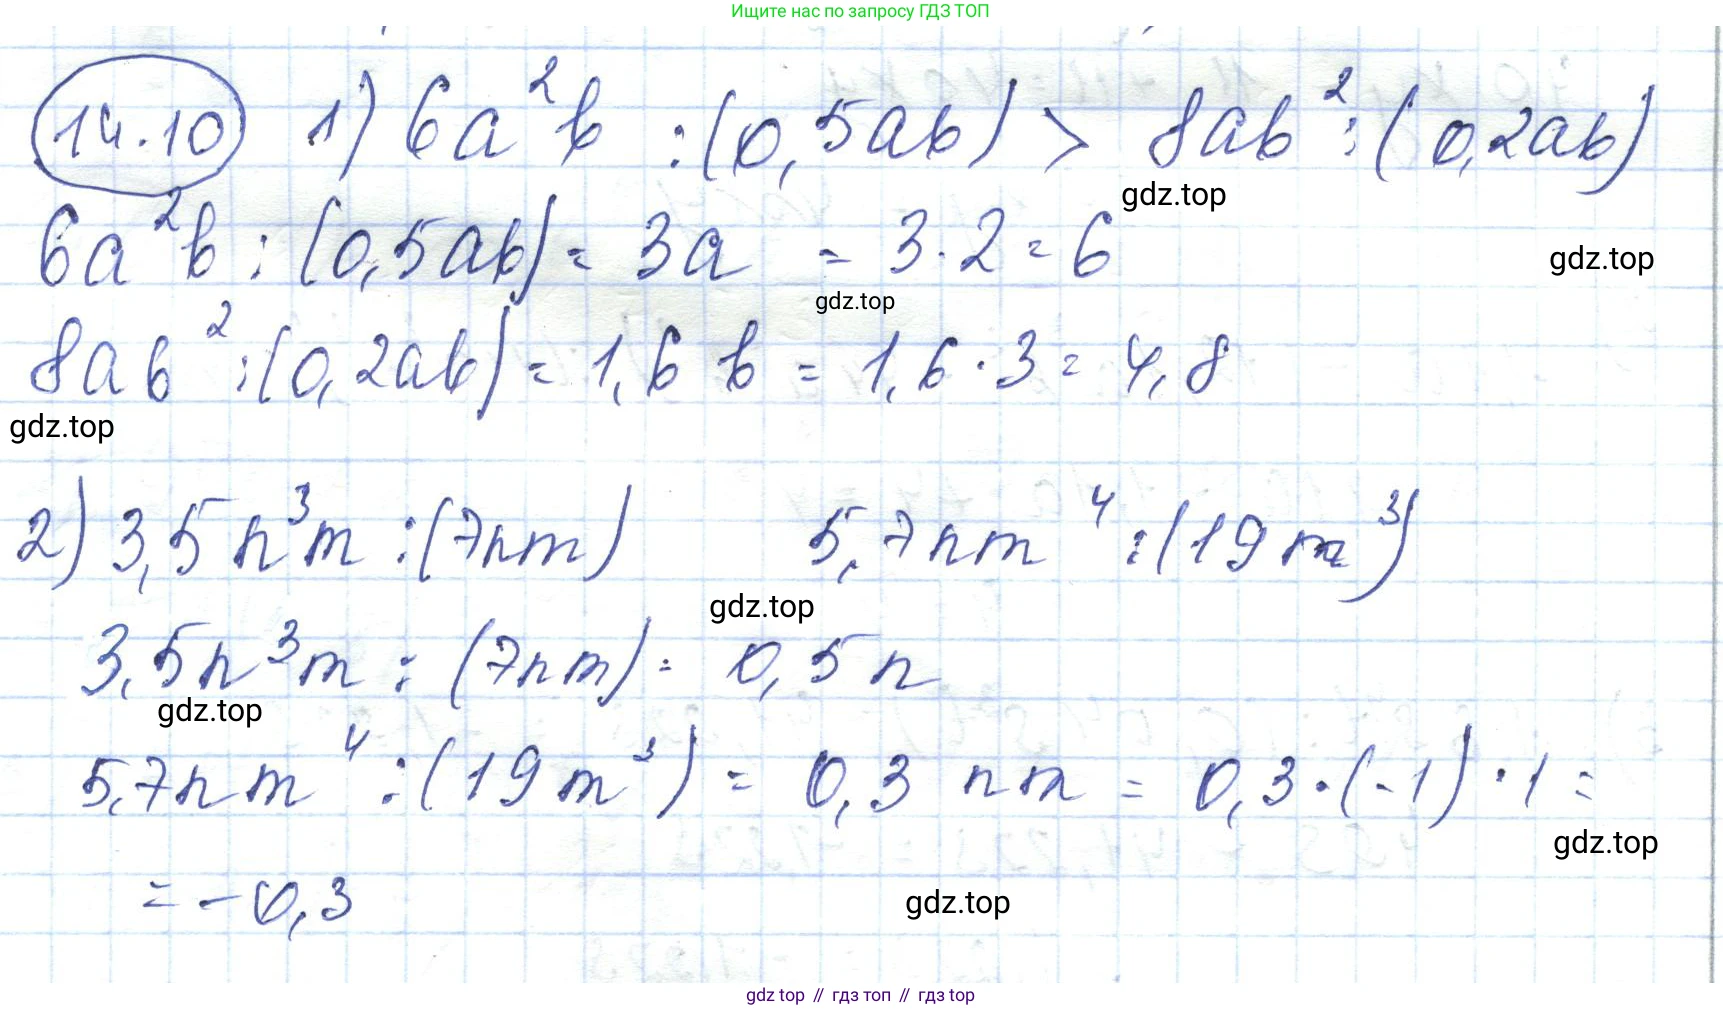 Ищите нас по запросу ГДЗ ТОП
14.10 1) 6a²b : (0,5ab) > 8ab² : (0,2ab)
gdz.top
6a²b : (0,5ab) = 3a = 3·2 = 6
gdz.top
gdz.top
8ab² : (0,2ab) = 1,6 b = 1,6·3 = 4,8
gdz.top
2) 3,5n³m : (7nm) 5,7nm⁴ : (19m³)
gdz.top
3,5n³m : (7nm) = 0,5n
gdz.top
5,7nm⁴ : (19m³) = 0,3 nm = 0,3·(-1)·1 =
gdz.top
= -0,3
gdz.top
gdz top // гдз топ // гдз top